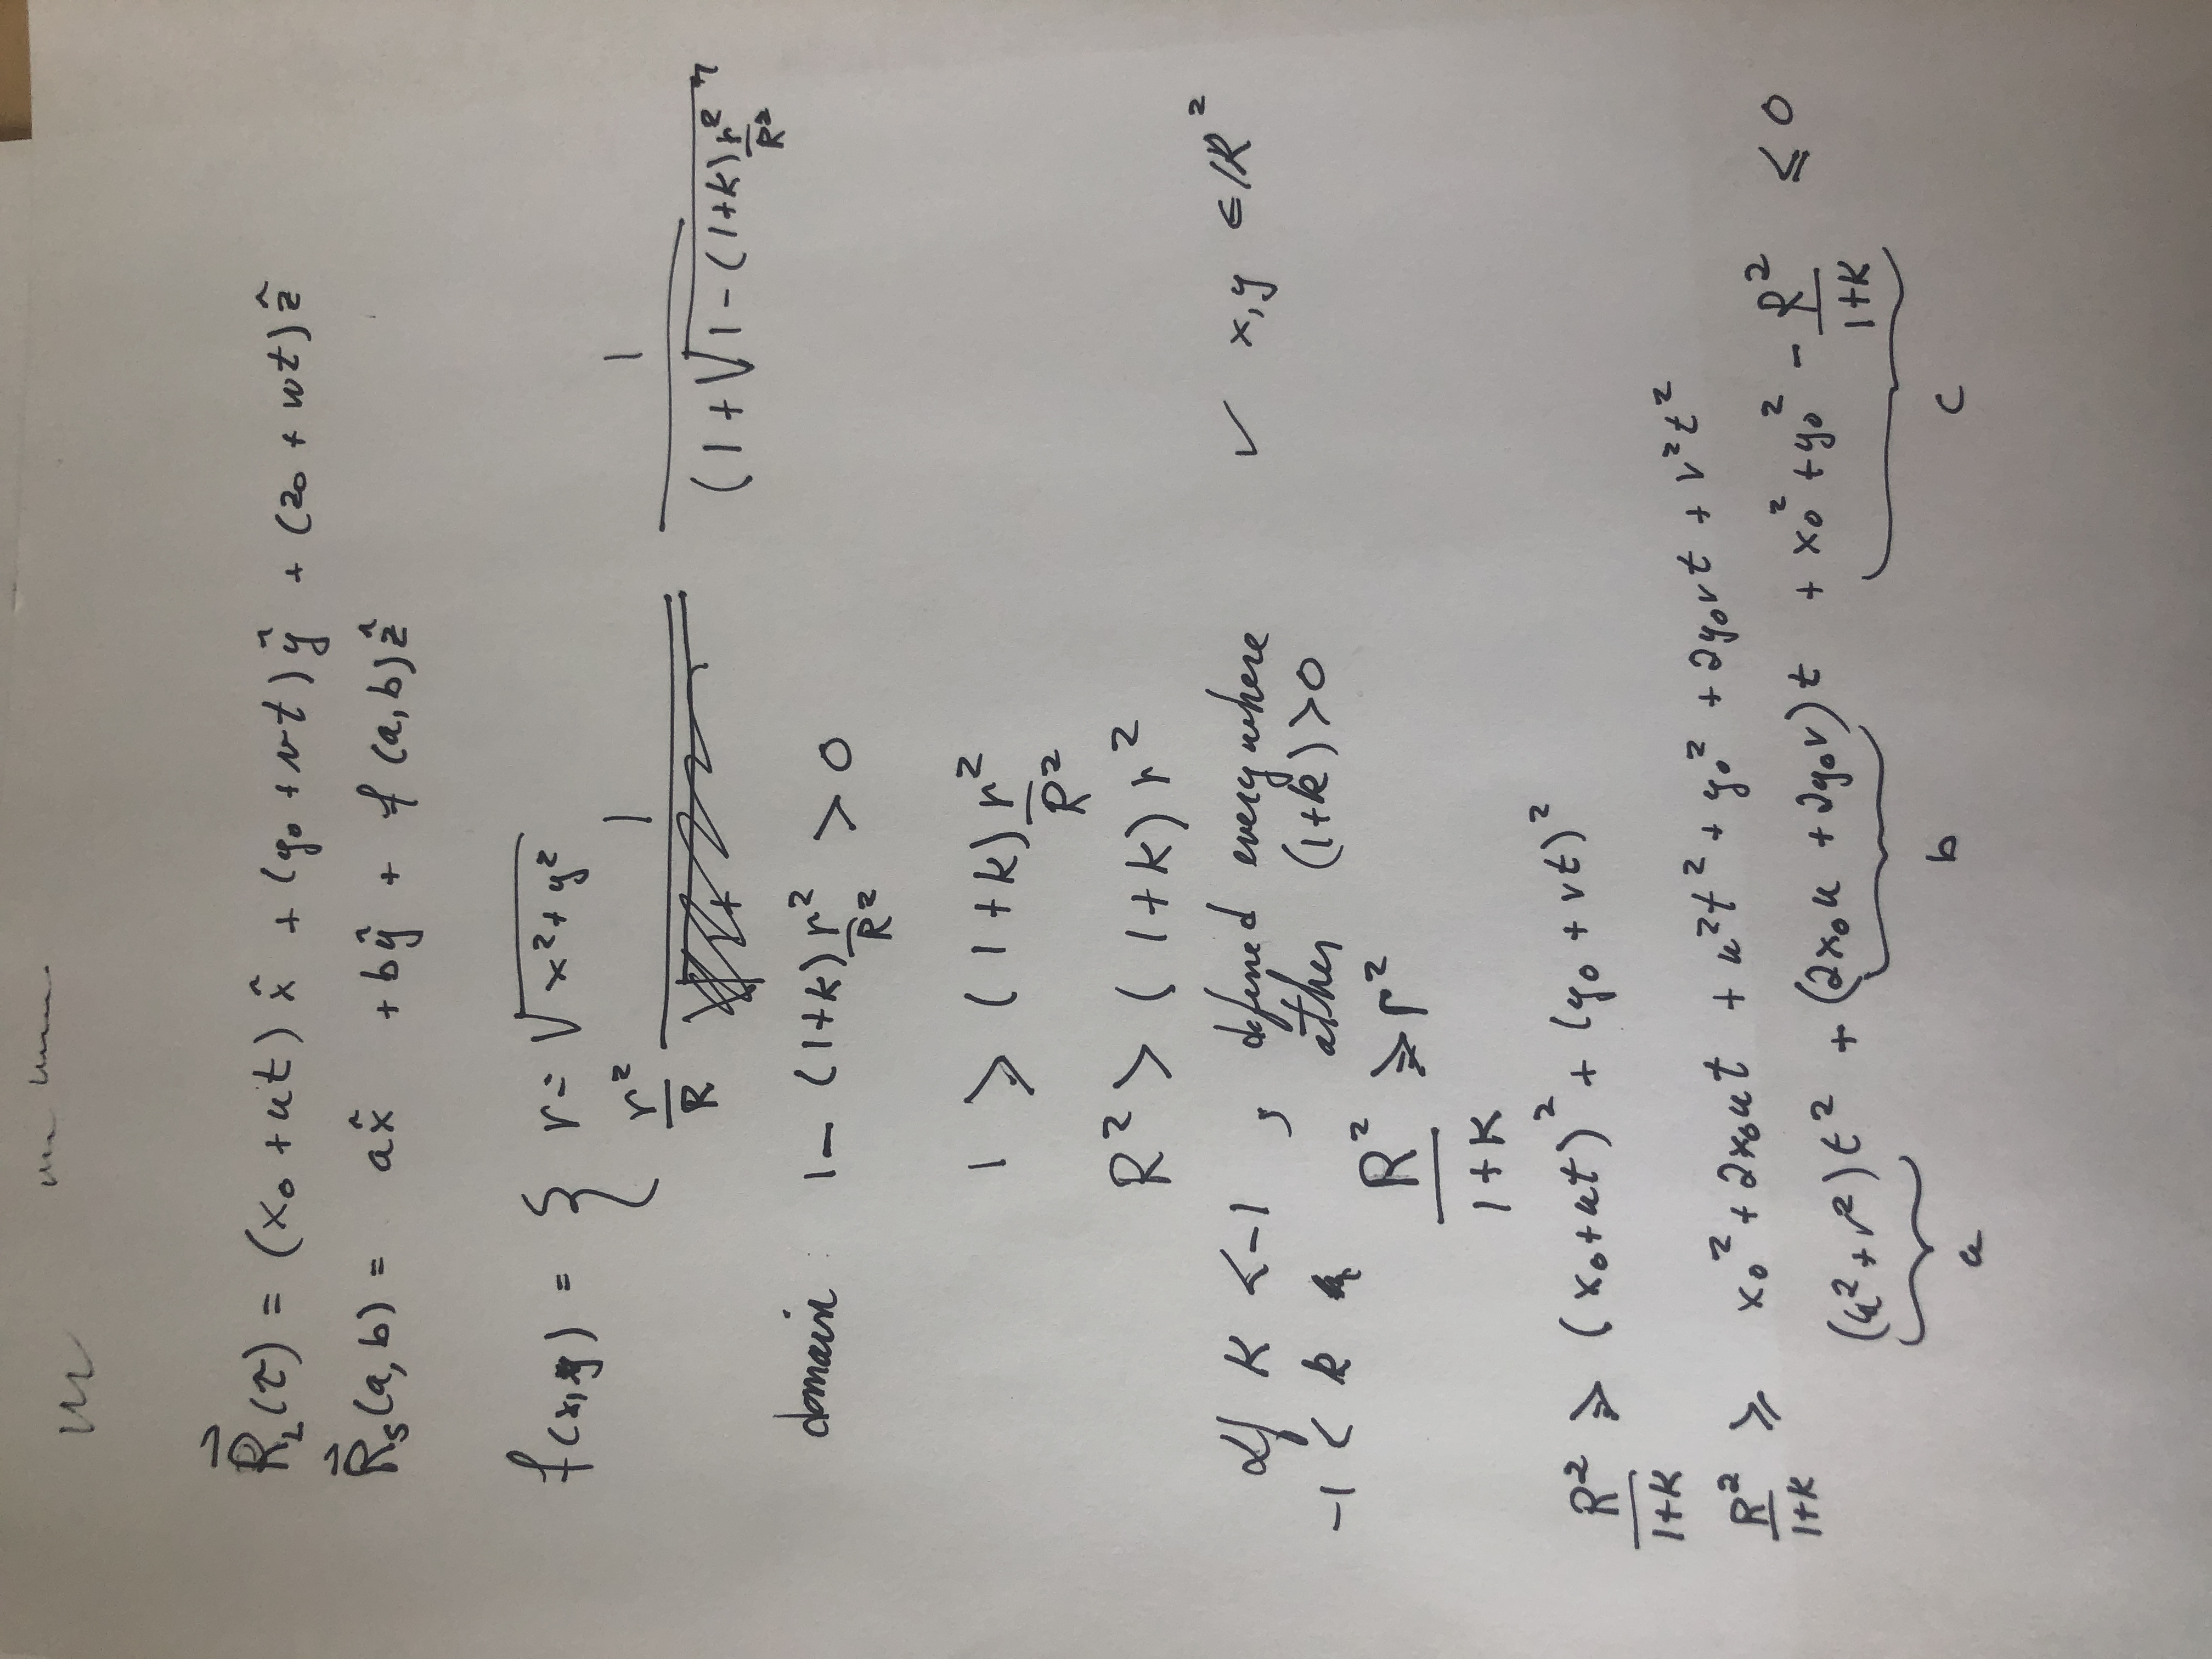 R⃗_L(τ) = (x₀ + ut) x̂ + (y₀ + vt) ŷ + (z₀ + wt) ẑ
R⃗_S(a, b) = a x̂ + b ŷ + f (a, b) ẑ
f(x, y) = { r = √(x² + y²)
r²/R 1/(1 + √(1 - (1+k) r²/R²
domain : 1 - (1+k) r²/R² > 0
1 > (1+k) r²/R²
R² > (1+k) r²
If K < -1 , defined everywhere ✓ x, y ∈ ℝ²
-1 < k (1+k) > 0
R²/(1+K) ⩾ r²
R²/(1+K) ⩾ (x₀+ut)² + (y₀ + vt)²
R²/(1+K) ⩾ x₀² + 2x₀ut + u²t² + y₀² + 2y₀vt + v²t²
(u² + v²) t² + (2x₀u + 2y₀v) t + x₀² + y₀² - R²/(1+K) ⩽ 0
a b c